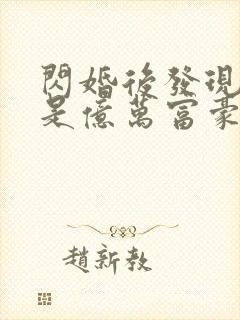 閃婚後發現
是億萬富豪
趙新教